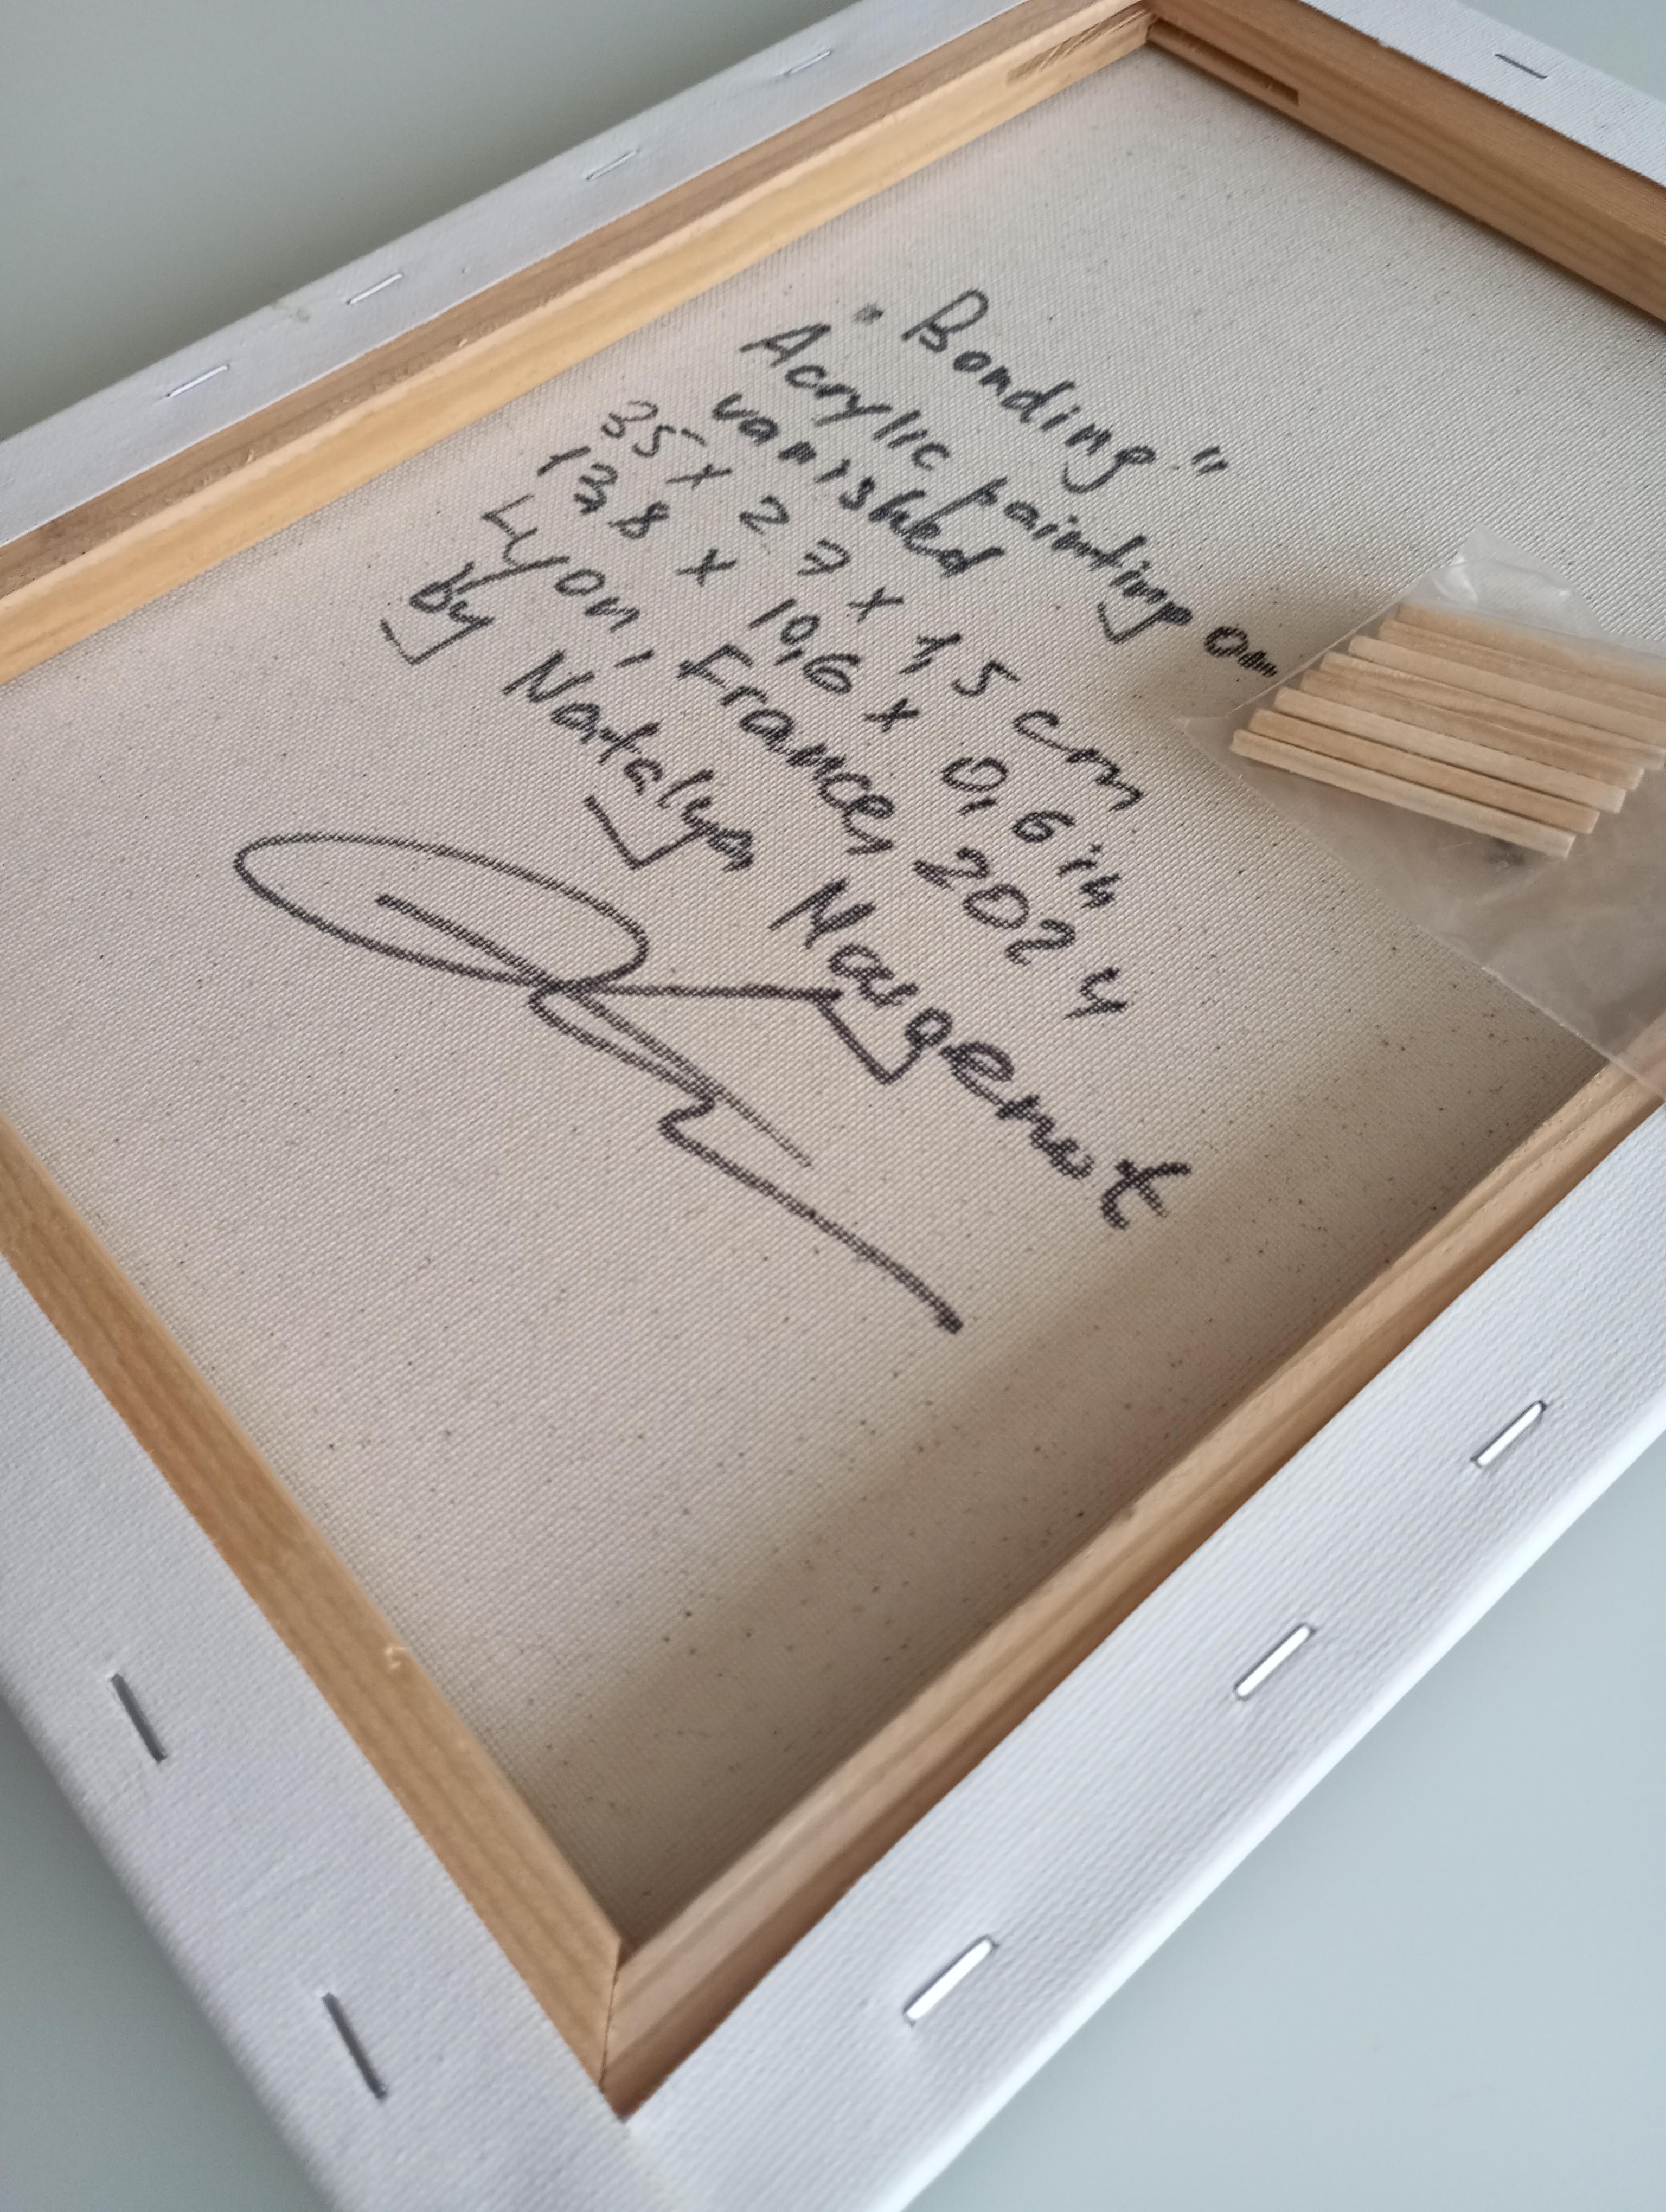 "Bonding"
Acrylic painting on
vanished
35 x 27 x 1,5 cm
13,8 x 10,6 x 0,6 in
Lyon, France, 2024
by Natalya